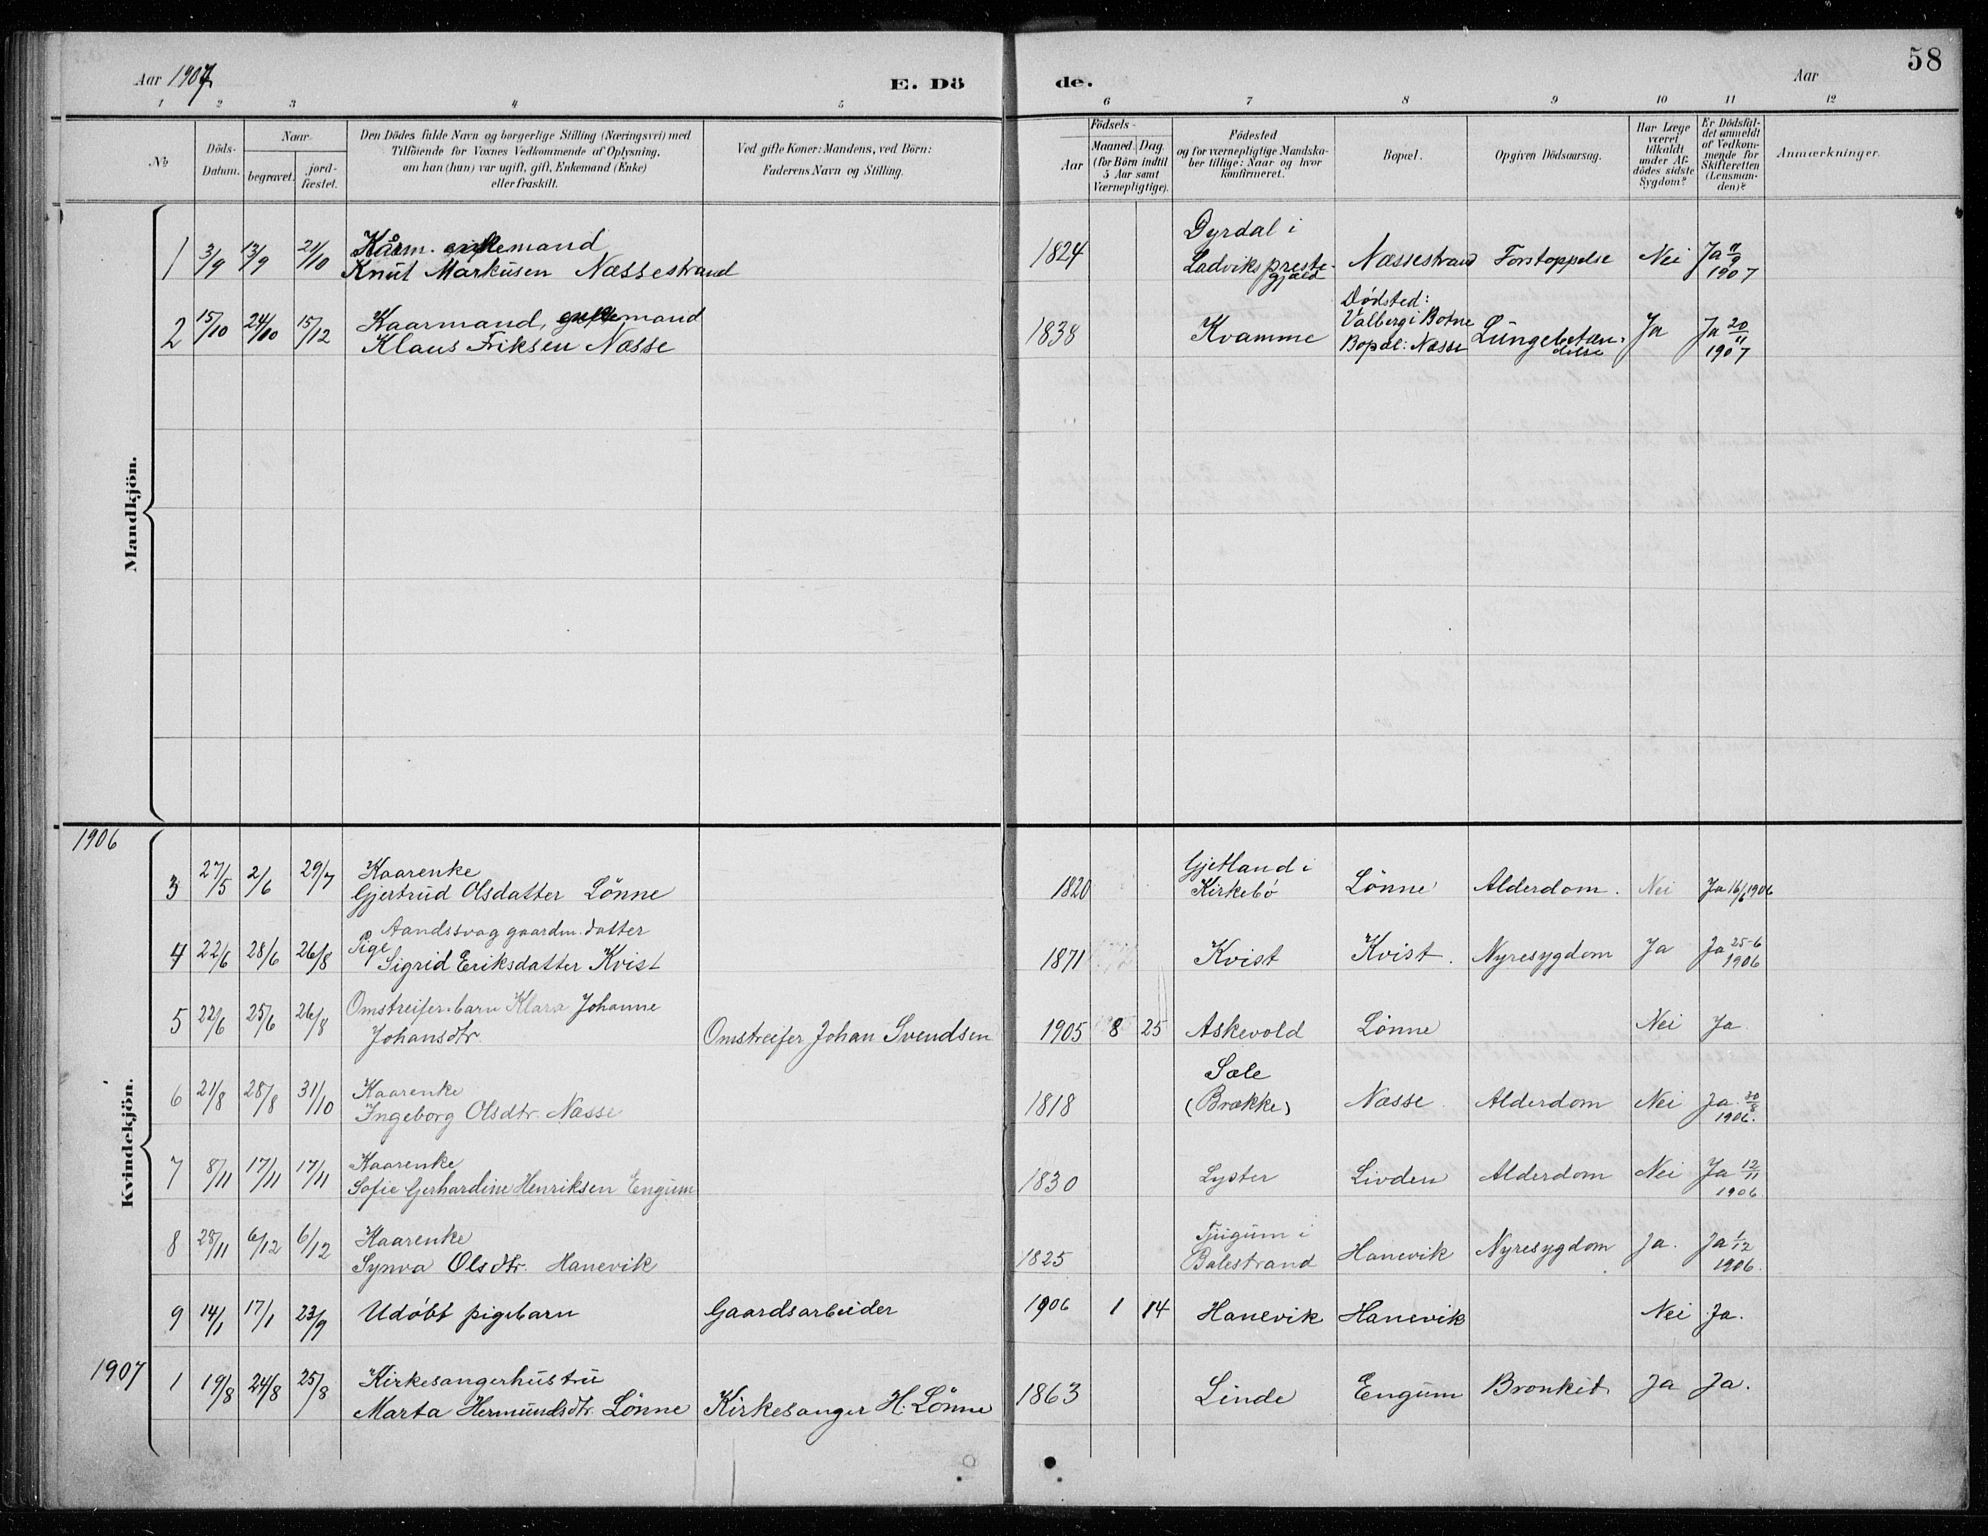 58
Aar 1907
E. Dö
de.
Aar
1 2 3 4 5 6 7 8 9 10 11 12
No
Döds-
Datum.
Naar
begravet.
jord-
fæstet.
Den Dödes fulde Navn og borgerlige Stilling (Næringsvei) med
Tilföiende for Voxnes Vedkommende af Oplysning,
om han (hun) var ugift, gift, Enkemand (Enke)
eller fraskilt.
Ved gifte Koner: Mandens, ved Börn:
Faderens Navn og Stilling.
Födsels-
Aar
Maaned. Dag.
(for Börn indtil
5 Aar samt
Værnepligtige).
Födested
og for værnepligtige Mandska-
ber tillige: Naar og hvor
konfirmeret.
Bopæl.
Opgiven Dödsaarsag.
Har Læge
været
tilkaldt
under Af-
dödes sidste
Sygdom?
Er Dödsfal-
det anmeldt
af Vedkom-
mende for
Skifteretten
(Lensman-
den)?
Anmærkninger.
Mandkjön.
1 3/9 13/9 21/10 Kårm. enkemand
Knut Markusen Næssestrand
1824 Dyrdal i
Ladviks preste-
gjæld
Næssestrand Forstoppelse Nei Ja 11/9
1907
2 15/10 24/10 15/12 Kaarmand, enkemand
Klaus Eriksen Næsse
1838 Kvamme
Dødsted:
Valberg i Botne
Bopæl: Næsse
Lungebetæn-
delse
Ja Ja 20/11
1907
Kvindekjön.
1906
3 27/5 2/6 29/7 Kaarenke
Gjertrud Olsdatter Lönne
1820 Gjetland i
Kirkebö
Lönne Alderdom. Nei Ja 16/6 1906
4 22/6 28/6 26/8 Aandssvag gaardm. datter
Pige
Sigrid Eriksdatter Kvist
1871 Kvist Kvist. Nyresygdom Ja Ja 25-6
1906
5 22/6 25/6 26/8 Omstreifer-barn Klara Johanne
Johansdtr.
Omstreifer Johan Svendsen
1905 8 25 Askevold Lönne Nei Ja
6 21/8 28/8 31/10 Kaarenke
Ingeborg Olsdtr. Næsse
1818 Sæle
(Brække)
Næsse. Alderdom Nei Ja. 30/8
1906.
7 8/11 17/11 17/11 Kaarenke
Sofie Gerhardine Henriksen Engum
1830 Lyster Livden Alderdom Nei Ja 12/11
1906
8 28/11 6/12 6/12 Kaarenke
Synva Olsdtr. Hanevik
1825 Tjugum i
Balestrand
Hanevik Nyresygdom Ja. Ja 1/12
1906.
9 14/1 17/1 23/9 Udøbt pigebarn
Gaardsarbeider
1906 1 14 Hanevik Hanevik Nei Ja.
1907
1 19/8 24/8 25/8 Kirkesangerhustru
Marta Hermundsdtr. Lönne
Kirkesanger H. Lönne
1863 Linde Engum Bronkit Ja Ja.